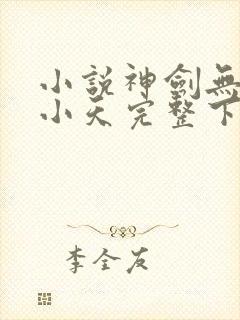 小說神劍無
小天完整下
李全友